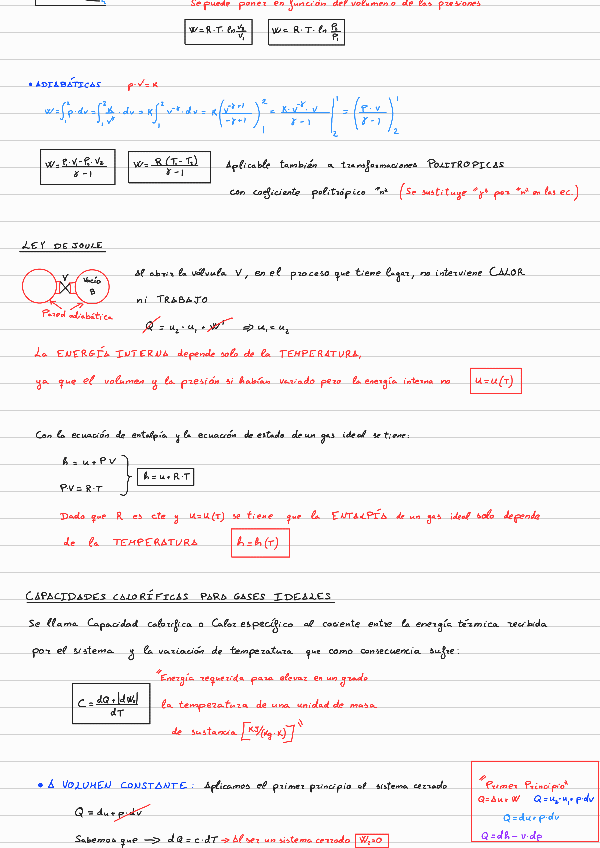 Se puede poner en función del volumen o de las presiones
W=R·T·ln V₂/V₁   W=R·T·ln P₂/P₁
• ADIABÁTICAS   p·V^γ=K
W=∫₁² p·dv = ∫₁² K/V^γ · dv = K∫₁² v^-γ · dv = K(v^-γ+1/-γ+1)₁² = K·v^-γ·v/γ-1 |₂¹ = (p·v/γ-1)₂¹
W= P₁·V₁-P₂·V₂/γ-1   W= R(T₁-T₂)/γ-1   Aplicable también a transformaciones POLITRÓPICAS
con coeficiente politrópico "n" (Se sustituye "γ" por "n" en las ec.)
LEY DE JOULE
V   Vacío   Al abrir la válvula V, en el proceso que tiene lugar, no interviene CALOR
B   ni TRABAJO
Pared adiabática   Q = u₂-u₁+W ⇒ u₁=u₂
La ENERGÍA INTERNA depende solo de la TEMPERATURA,
ya que el volumen y la presión si habían variado pero la energía interna no   u=u(T)
Con la ecuación de entalpía y la ecuación de estado de un gas ideal se tiene:
h = u+P·V
h=u+R·T
P·V=R·T
Dado que R es cte y u=u(T) se tiene que la ENTALPÍA de un gas ideal solo depende
de la TEMPERATURA   h=h(T)
CAPACIDADES CALORÍFICAS PARA GASES IDEALES
Se llama Capacidad calorífica o Calor específico al cociente entre la energía térmica recibida
por el sistema y la variación de temperatura que como consecuencia sufre:
"Energía requerida para elevar en un grado
C= dQ+|dWr|/dT   la temperatura de una unidad de masa
de sustancia [KJ/(Kg·K)]"
• A VOLUMEN CONSTANTE: Aplicamos el primer principio al sistema cerrado
"Primer Principio"
Q=Δu+W   Q=u₂-u₁+p·dv
Q = du+p·dv
Q=du+p·dv
Q=dh-v·dp
Sabemos que → dQ=c·dT → Al ser un sistema cerrado Wr=0